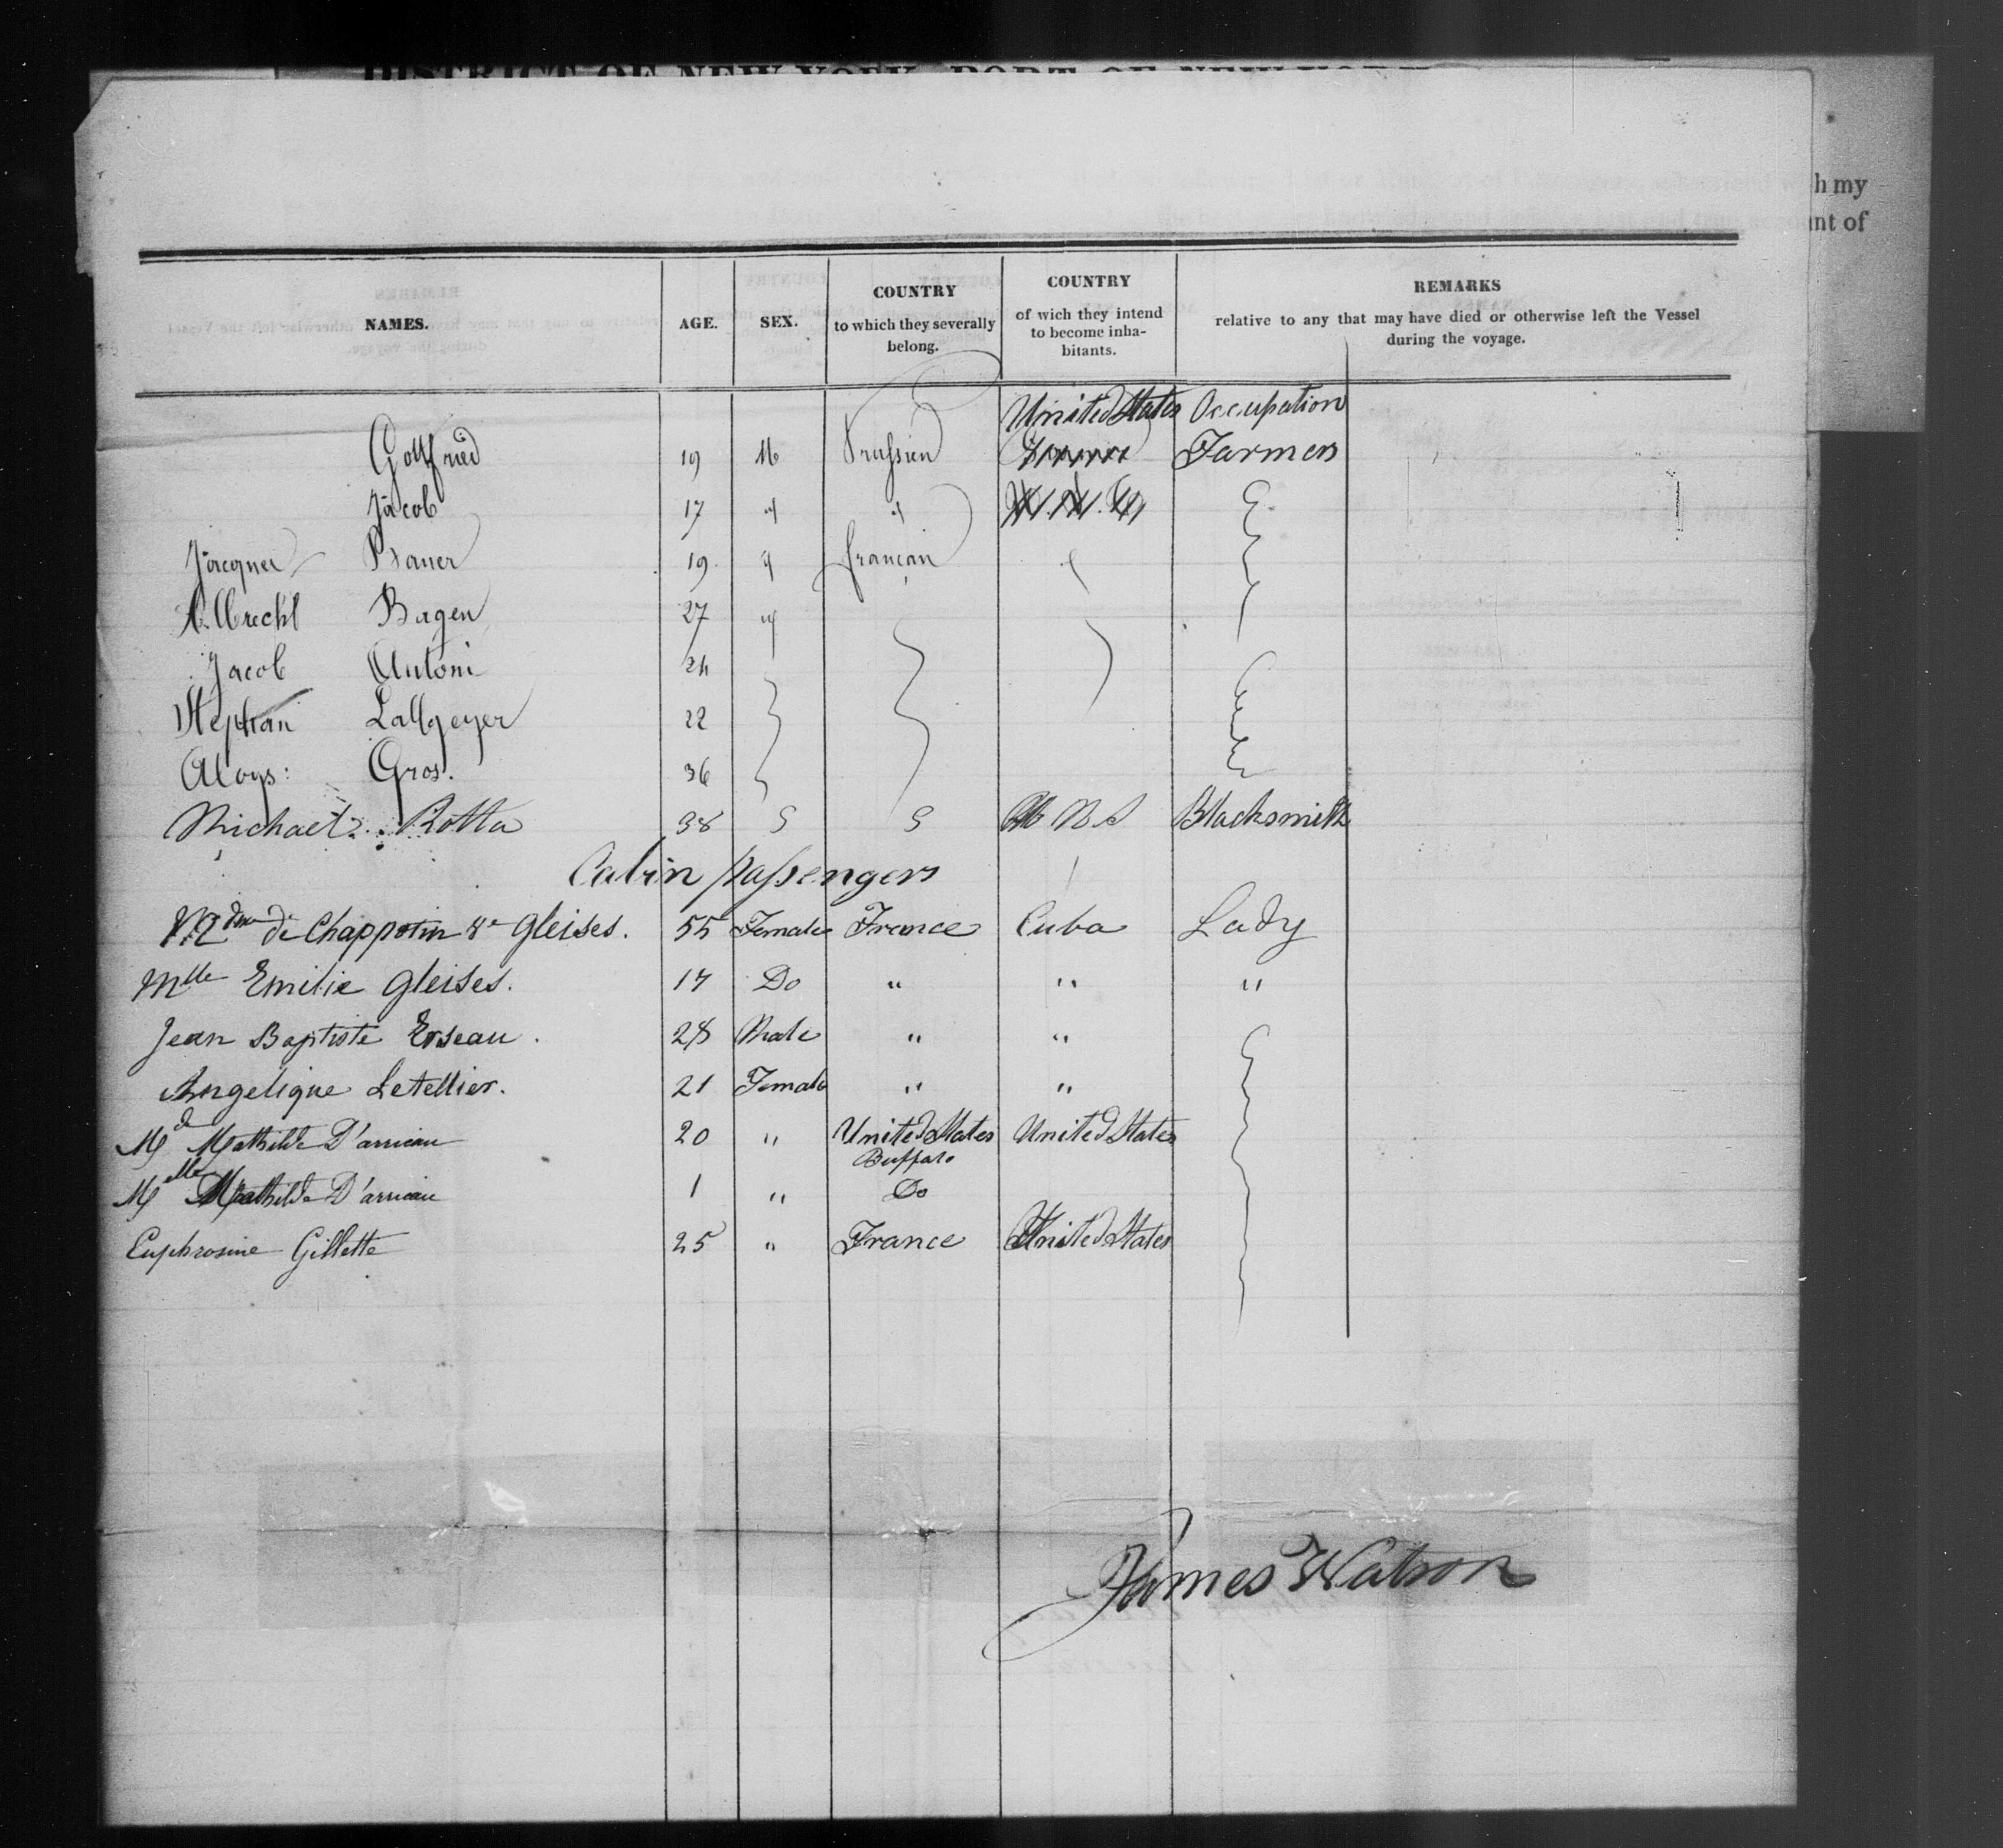 DISTRICT OF NEW-YORK, PORT OF NEW-YORK
h my
unt of
NAMES. AGE. SEX. COUNTRY to which they severally belong. COUNTRY of wich they intend to become inhabitants. REMARKS relative to any that may have died or otherwise left the Vessel during the voyage.
United States Occupation
Gottfried 19 M Prussien Farmers
Jacob 17 " "
Jacques Bauer 19 " francain "
Albrecht Bagen 27 "
Jacob Antoni 24
Stephan Lallgeyer 22
Aloys: Gros. 36
Michael Rotta 38 Blacksmith
Cabin passengers
Mdme de Chappotin Ve Gleises. 55 Female France Cuba Lady
Mlle Emilie Gleises. 17 Do " " "
Jean Baptiste Erseau. 28 Male " "
Angelique Letellier. 21 Female " "
Mde Mathilde D'arricau 20 " United States United States
Buffalo
Melle Mathilde D'arricau 1 " Do
Euphrosine Gillette 25 " France United States
James Watson